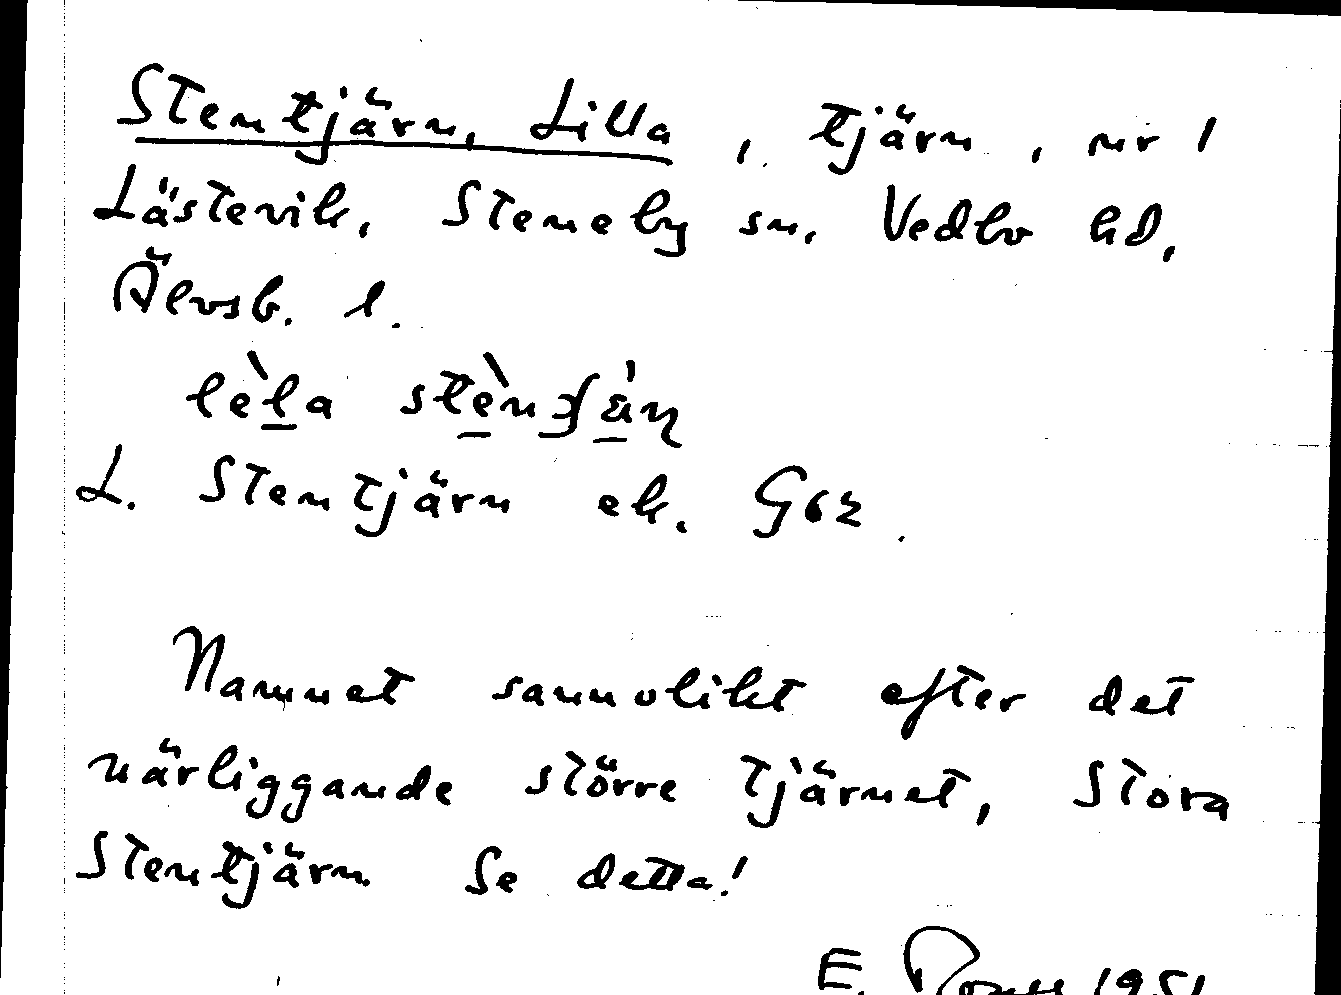 Stentjärn, Lilla, tjärn, nr 1
Lästevik, Steneby sn. Vedbo hd,
Älvsb. l.
L. Stentjärn ek. G62.
Namnet sannolikt efter det
närliggande större tjärnet, Stora
Stentjärn Se detta!
E. 1951